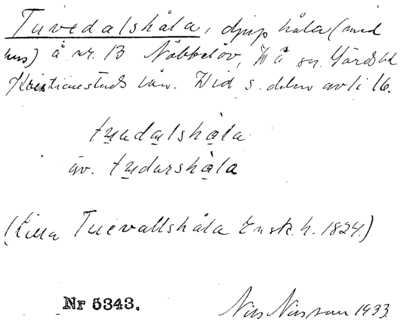 Tuvedalshåla, djup håla (med
hus) å nr. 13 Nöbbelöv, V Å sn. Gärds hd
Kristianstads län. Vid s. delen av li 16.
tuadalshåla
äv. tudarshåla
(Lilla Tuevallshåla Ensk. h. 1824.)
Nr 5343.
Nils Nilsson 1933.